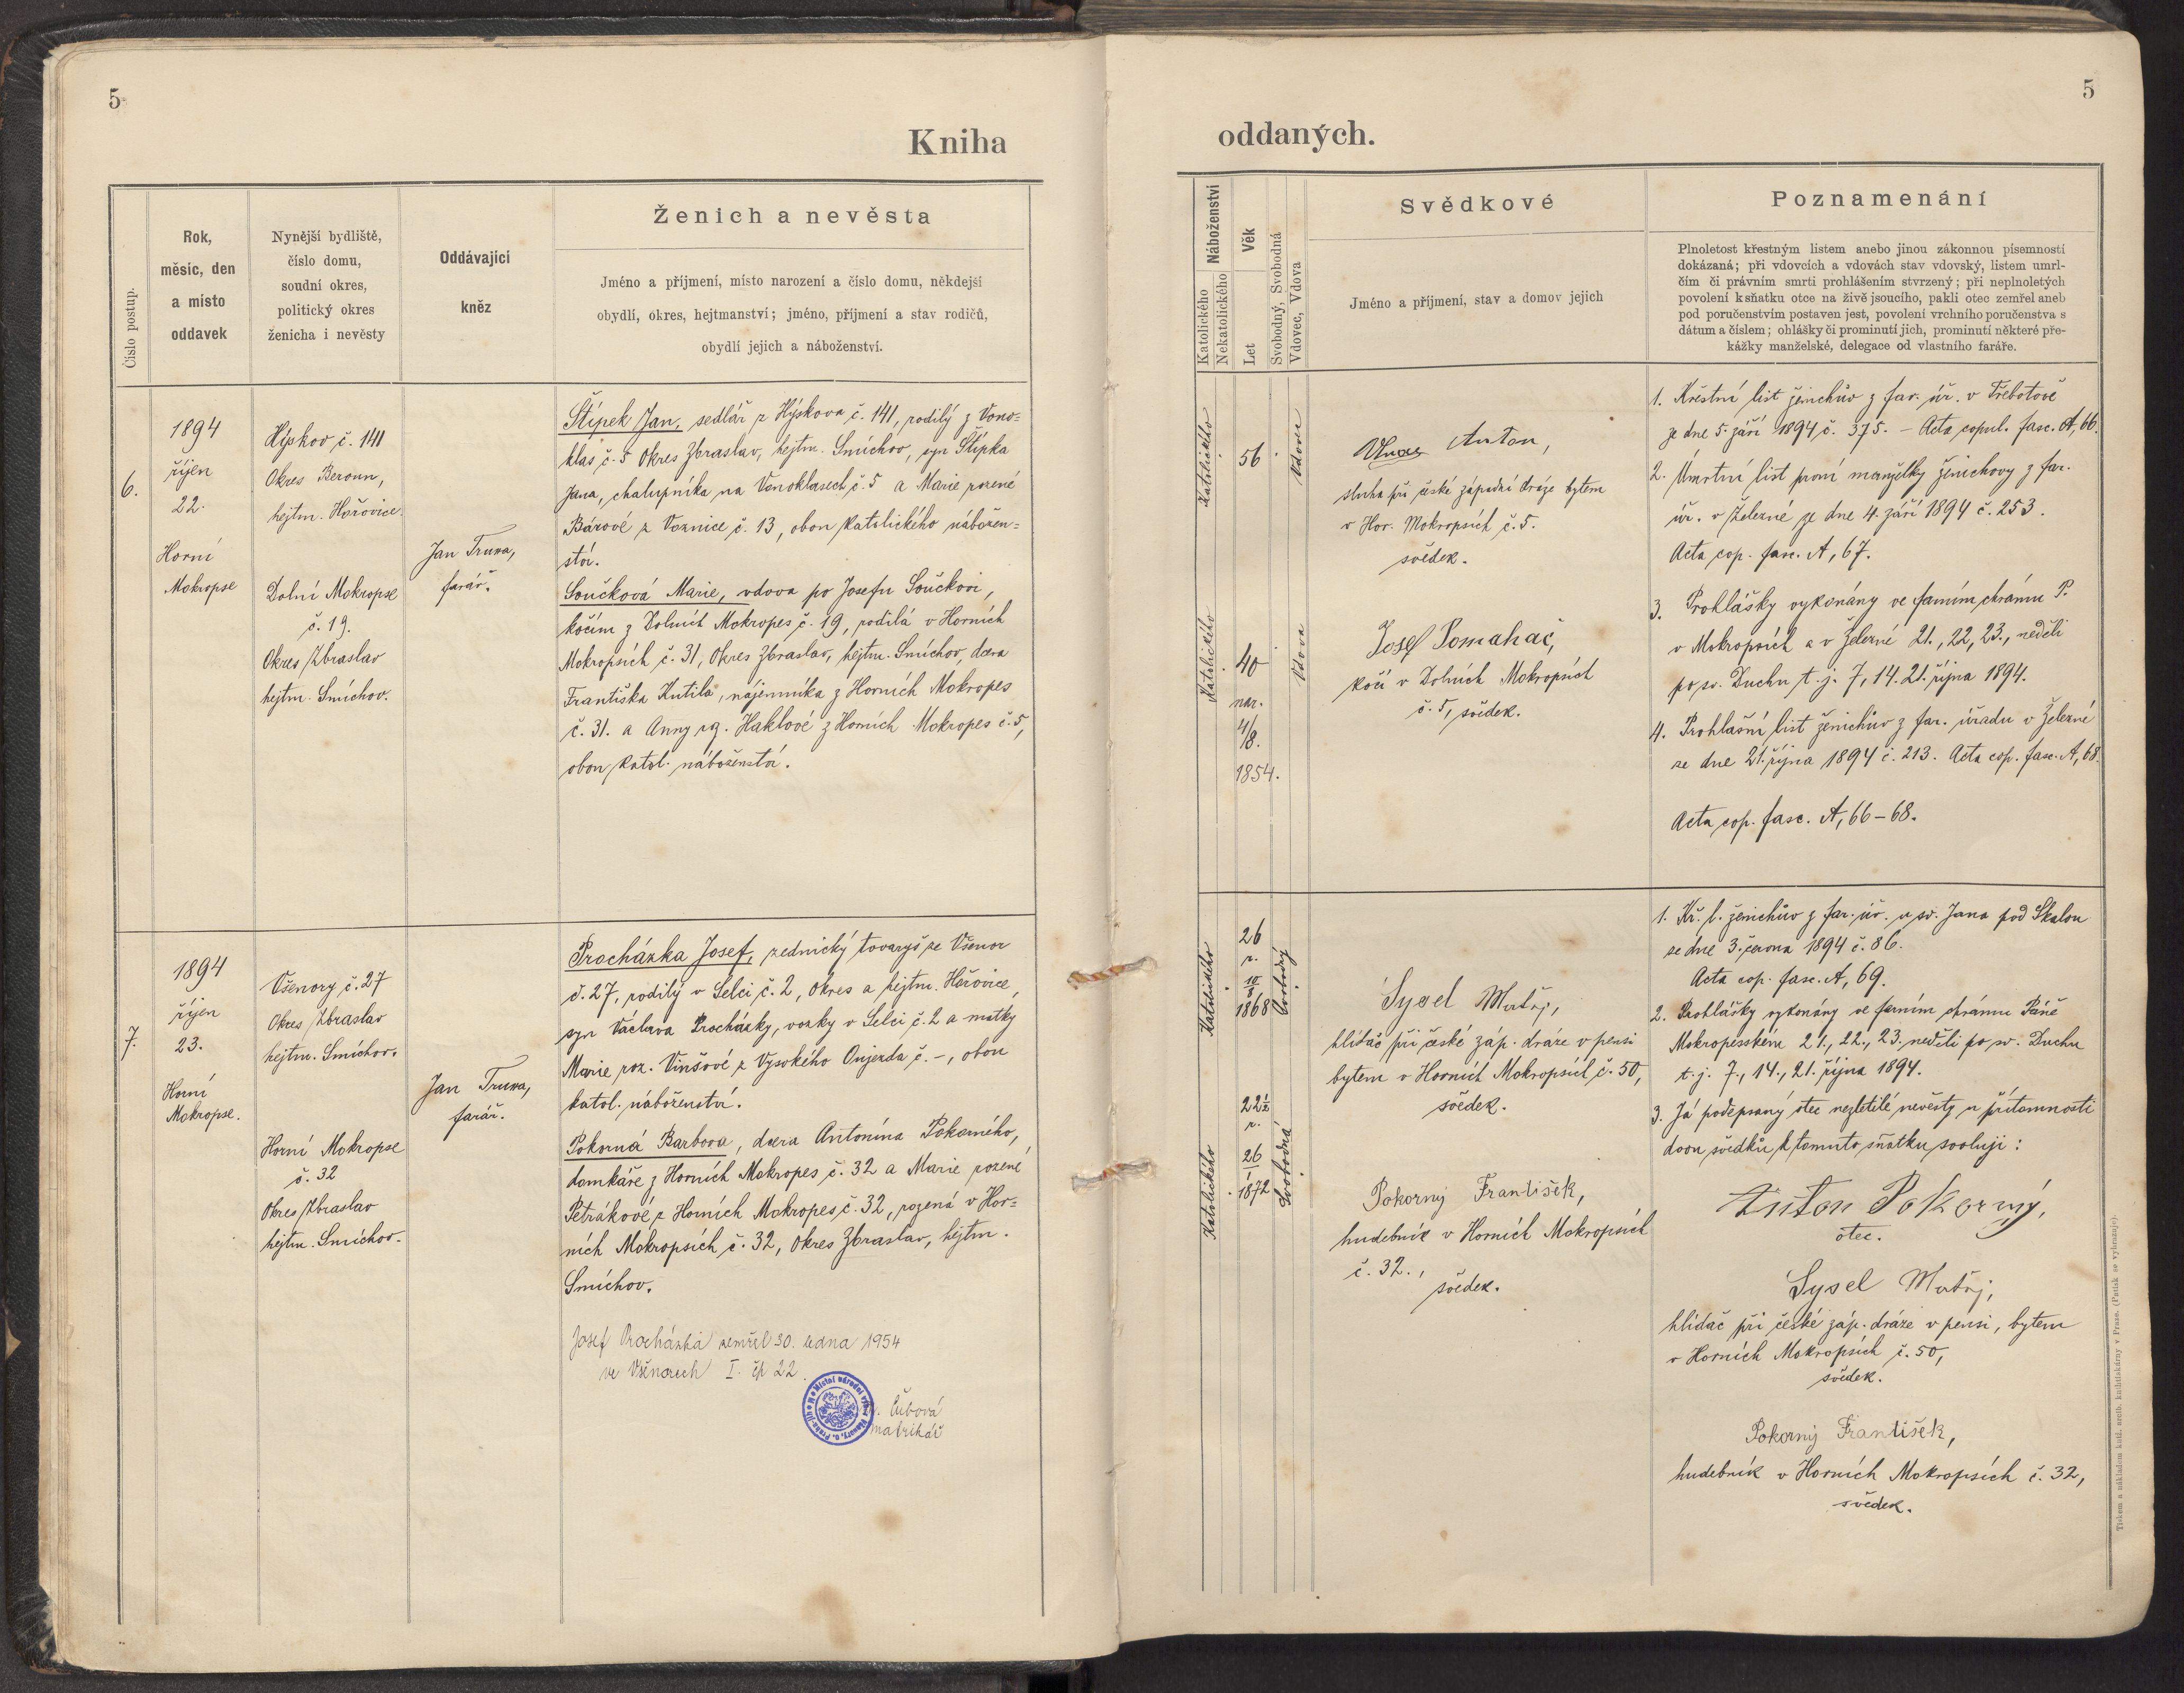 5
Kniha
Číslo postup.
Rok,
měsíc, den
a místo
oddavek
Nynější bydliště,
číslo domu,
soudní okres,
politický okres
ženicha i nevěsty
Oddávající
kněz
Ženich a nevěsta
Jméno a příjmení, místo narození a číslo domu, někdejší
obydlí, okres, hejtmanství; jméno, příjmení a stav rodičů,
obydlí jejich a náboženství.
6.
1894
říjen
22.
Horní
Mokropse
Hýskov č. 141
Okres Beroun,
hejtm. Hořovice.
Dolní Mokropse
č. 19.
Okres Zbraslav
hejtm. Smíchov.
Jan Truxa,
farář.
Štípek Jan, sedlář z Hýskova č. 141, rodilý z Vono=
klas č. 5 Okres Zbraslav, hejtm. Smíchov, syn Štípka
Jana, chalupníka na Vonoklasech č. 5 a Marie rozené
Bárové z Voznice č. 13, obou katolického nábožen=
ství.
Součková Marie, vdova po Josefu Součkovi,
kočím z Dolních Mokropes č. 19, rodilá v Horních
Mokropsích č. 31, Okres Zbraslav, hejtm. Smíchov, dcera
Františka Kutila, nájemníka z Horních Mokropes
č. 31. a Anny rz. Haklové z Horních Mokropes č. 5,
obou katol. náboženství.
7.
1894
říjen
23.
Horní
Mokropse.
Všenory č. 27
Okres Zbraslav
hejtm. Smíchov.
Horní Mokropse
č. 32
Okres Zbraslav
hejtm. Smíchov.
Jan Truxa,
farář.
Procházka Josef, zednický tovaryš ze Všenor
č. 27, rodilý v Selci č. 2, Okres a hejtm. Hořovice,
syn Václava Procházky, vozky v Selci č. 2 a matky
Marie roz. Vinšové z Vysokého Oujezda č. –, obou
katol. náboženství.
Pokorná Barbora, dcera Antonína Pokorného,
domkáře z Horních Mokropes č. 32 a Marie rozené
Petrákové z Horních Mokropes č. 32, rozená v Hor=
ních Mokropsích č. 32, Okres Zbraslav, hejtm.
Smíchov.
Josef Procházka zemřel 30. ledna 1954
ve Všenorech I. čp 22.
Čubová
matrikář
5
oddaných.
Náboženství
Katolického
Nekatolického
Věk
Let
Svobodný, Svobodná
Vdovec, Vdova
Svědkové
Jméno a příjmení, stav a domov jejich
Poznamenání
Plnoletost křestným listem anebo jinou zákonnou písemností
dokázaná; při vdovcích a vdovách stav vdovský, listem umrl-
čím či právním smrti prohlášením stvrzený; při neplnoletých
povolení k sňatku otce na živě jsoucího, pakli otec zemřel aneb
pod poručenstvím postaven jest, povolení vrchního poručenstva s
dátum a číslem; ohlášky či prominutí jich, prominutí některé pře-
kážky manželské, delegace od vlastního faráře.
Katolického
56
Vdovec
Katolického
40
nar.
4/8.
1854.
Vdova
Anton,
sluha při české západní dráze bytem
v Hor. Mokropsích č. 5.
svědek.
Josef Pomahač,
kočí v Dolních Mokropsích
č. 5, svědek.
1. Křestní list ženichův z far. úř. v Třebotově
ze dne 5. září 1894 č. 375. – Acta copul. fasc. A, 66.
2. Úmrtní list první manželky ženichovy z far.
úř. v Železné ze dne 4. září 1894 č. 253.
Acta cop. fasc. A, 67.
3. Prohlášky vykonány ve farním chrámu P.
v Mokropsích a v Železné 21., 22, 23., neděli
po sv. Duchu t. j. 7, 14. 21. října 1894.
4. Prohlašní list ženichův z far. úřadu v Železné
ze dne 21. října 1894 č. 213. Acta cop. fasc. A, 68.
Acta cop. fasc. A, 66–68.
Katolického
26
r.
10/8
1868
Svobodný
Katolického
22½
r.
26/1
1872
Svobodná
Sysel Matěj,
hlídač při české záp. dráze v pensi
bytem v Horních Mokropsích č. 50,
svědek.
Pokorný František,
hudebník v Horních Mokropsích
č. 32.,
svědek.
1. Kř. l. ženichův z far. úř. u sv. Jana pod Skalou
ze dne 3. června 1894 č. 86.
Acta cop. fasc. A, 69.
2. Prohlášky vykonány ve farním chrámu Páně
Mokropesském 21., 22., 23. neděli po sv. Duchu
t. j. 7., 14., 21. října 1894.
3. Já podepsaný otec nezletilé nevěsty u přítomnosti
dvou svědků k tomuto sňatku svoluji:
Anton Pokorný,
otec.
Sysel Matěj,
hlídač při české záp. dráze v pensi, bytem
v Horních Mokropsích č. 50,
svědek.
Pokorný František,
hudebník v Horních Mokropsích č. 32,
svědek.
Tiskem a nákladem kníž. arcib. knihtiskárny v Praze. (Patisk se vyhrazuje).